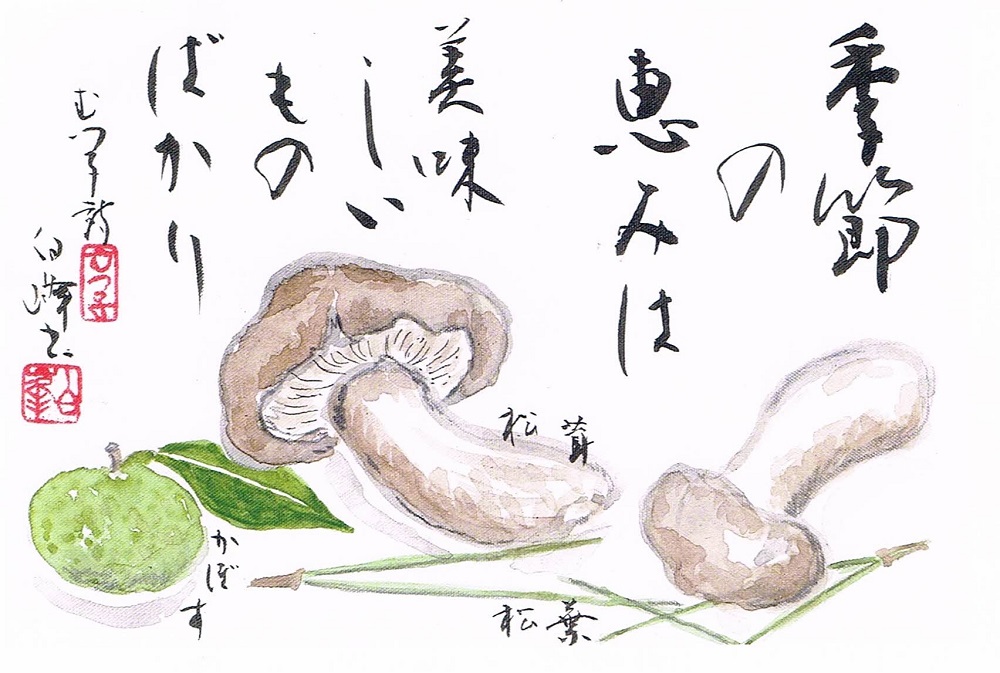 季節
の
恵みは
美味
しい
もの
ばかり
むつ子詩
白峰書
松茸
かぼす
松葉